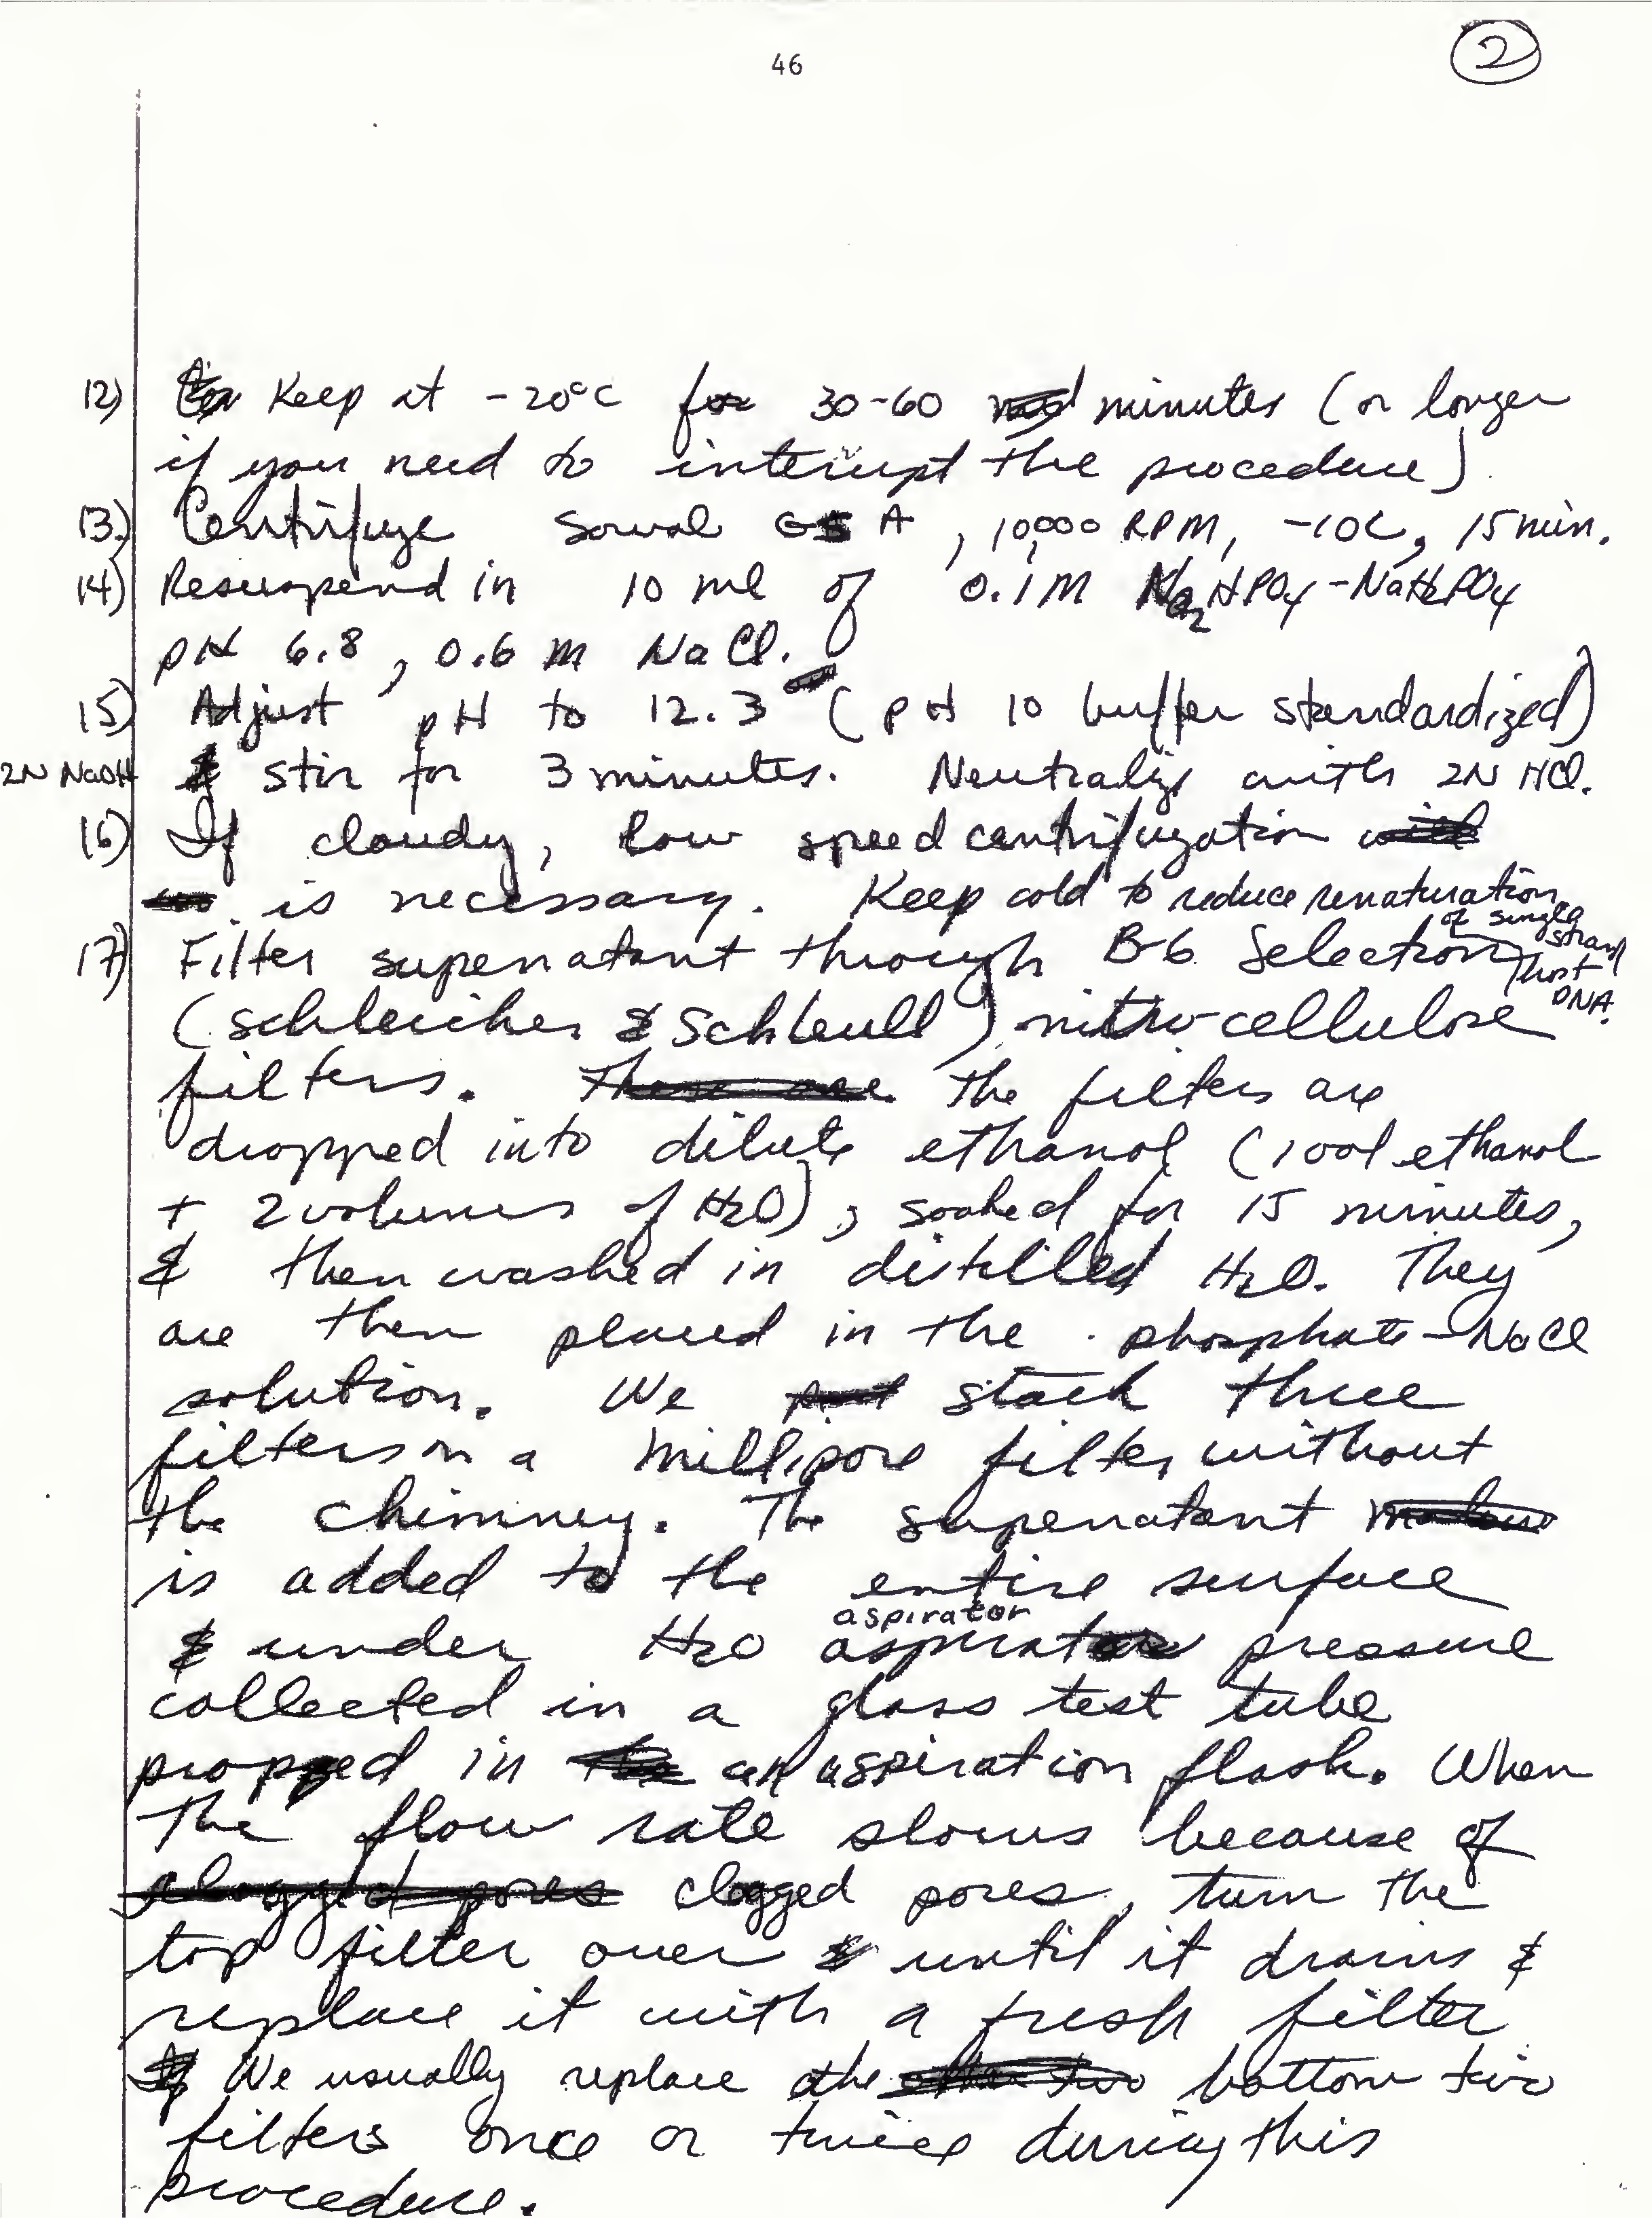 46
2
12) Keep at -20°C for 30-60 minutes (or longer
if you need to interrupt the procedure)
13.) Centrifuge Sorval GSA, 10,000 RPM, -10C, 15 min.
14) Resuspend in 10 ml of 0.1M Na2HPO4-NaH2PO4
pH 6.8, 0.6 m NaCl.
15) Adjust pH to 12.3 (pH 10 buffer standardized)
2N NaOH & stir for 3 minutes. Neutralize with 2N HCl.
16) If cloudy, low speed centrifugation
is necessary. Keep cold to reduce renaturation
of single strand host DNA.
17) Filter supernatant through B-6 Selection
(Schleicher & Schleull) nitro-cellulose
filters. These are The filters are
dropped into dilute ethanol (1 vol ethanol
+ 2 volumes of H2O), soaked for 15 minutes,
& then washed in distilled H2O. They
are then placed in the phosphate-NaCl
solution. We stack three
filters on a millipore filter without
the chimney. The supernatant
is added to the entire surface
aspirator
& under H2O aspirator pressure
collected in a glass test tube
propped in an aspiration flask. When
the flow rate slows because of
clogged pores clogged pores, turn the
top filter over & until it drains &
replace it with a fresh filter
We usually replace the other two bottom two
filters once or twice during this
procedure.